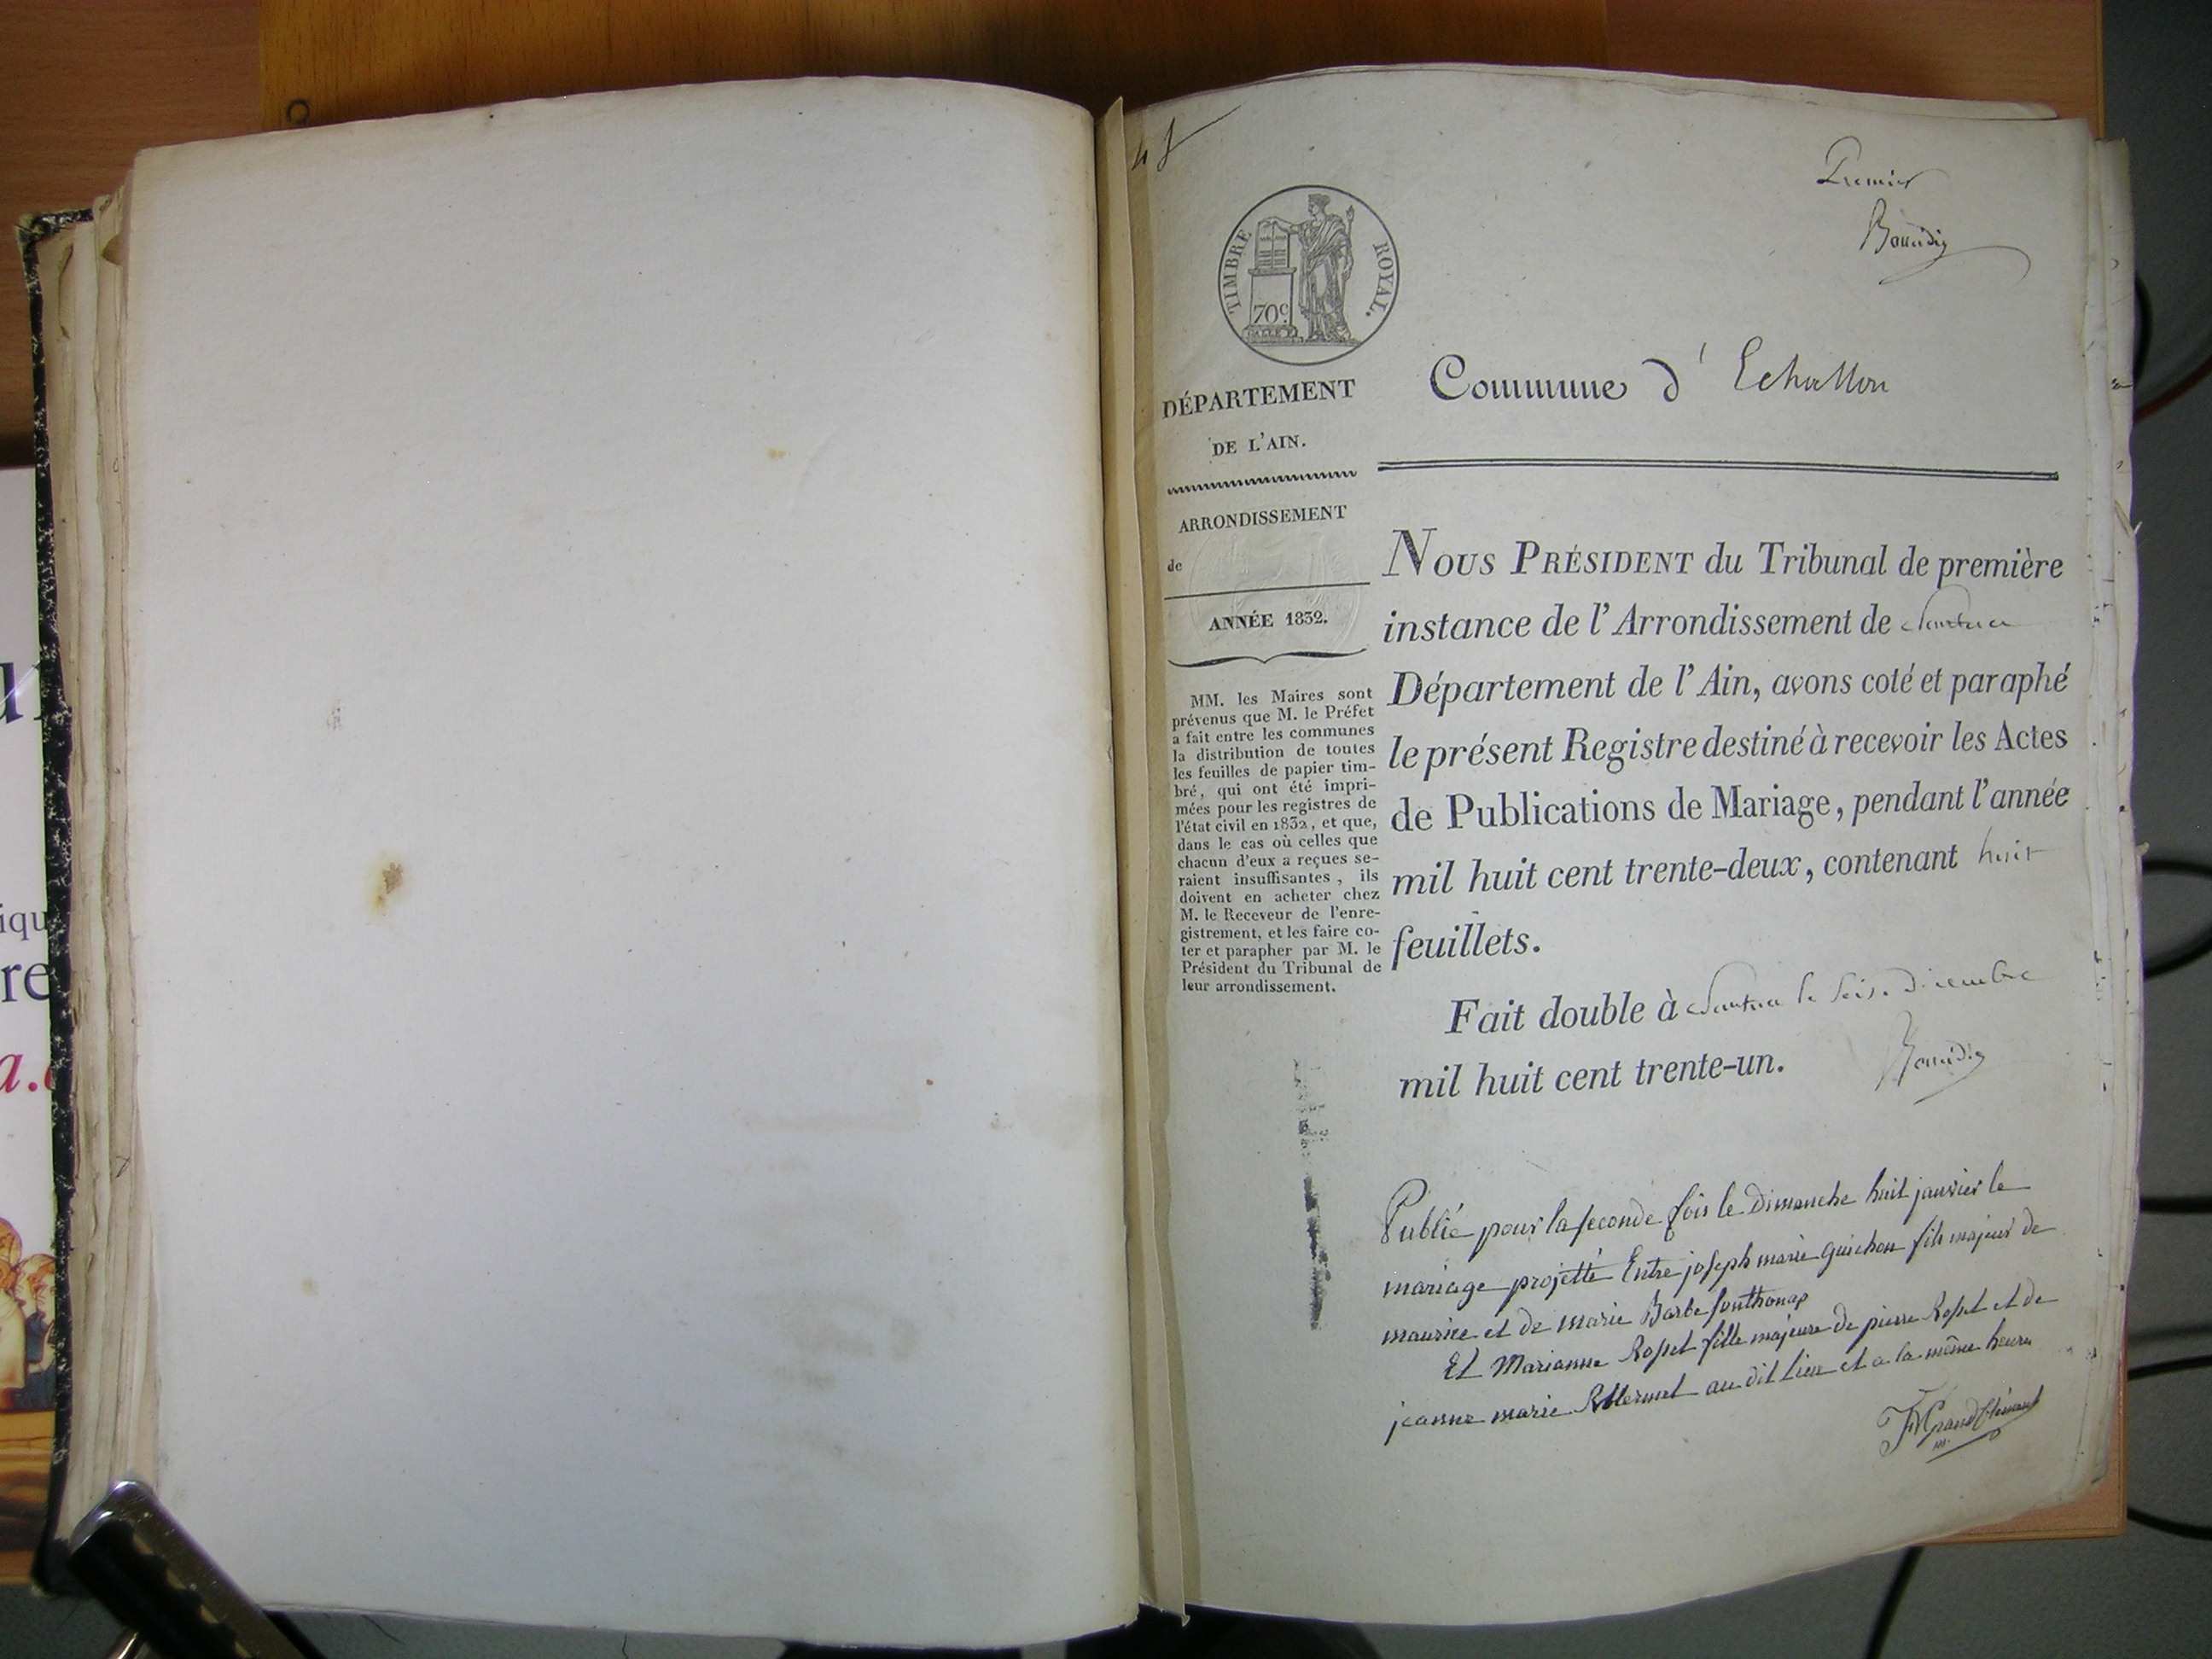 Premier
TIMBRE ROYAL.
70c
DÉPARTEMENT
DE L'AIN.
ARRONDISSEMENT
de
ANNÉE 1832.
MM. les Maires sont
prévenus que M. le Préfet
a fait entre les communes
la distribution de toutes
les feuilles de papier tim-
bré, qui ont été impri-
mées pour les registres de
l'état civil en 1832, et que,
dans le cas où celles que
chacun d'eux a reçues se-
raient insuffisantes, ils
doivent en acheter chez
M. le Receveur de l'enre-
gistrement, et les faire co-
ter et parapher par M. le
Président du Tribunal de
leur arrondissement.
Commune d' Echallon
NOUS PRÉSIDENT du Tribunal de première
instance de l'Arrondissement de Nantua
Département de l'Ain, avons coté et paraphé
le présent Registre destiné à recevoir les Actes
de Publications de Mariage, pendant l'année
mil huit cent trente-deux, contenant huit
feuillets.
Fait double à Nantua le seize Décembre
mil huit cent trente-un.
Publié pour la seconde fois le Dimanche huit janvier le
mariage projetté Entre joseph marie guichon fils majeur de
maurice et de marie Barbe
Et Marianne Rosset fille majeure de pierre Rosset et de
jeanne marie au dit Lieu et a la même heure
GrandClément
iqu
re
a.